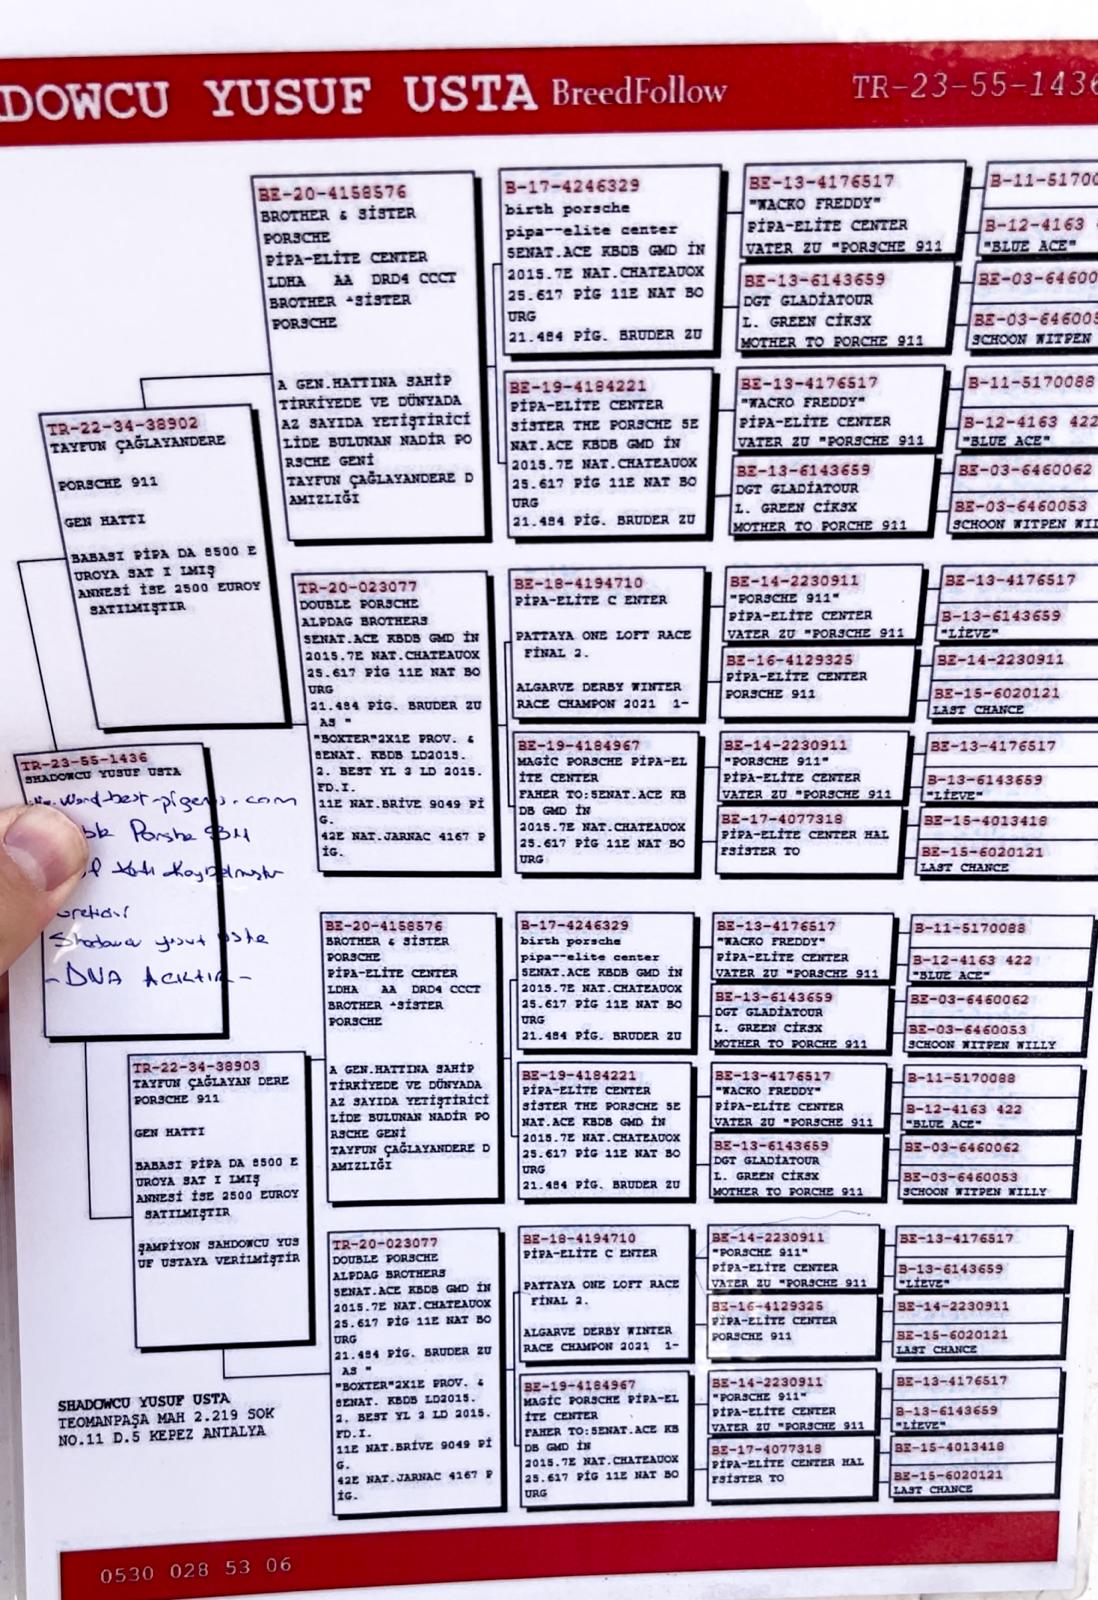 DOWCU YUSUF USTA BreedFollow
TR-23-55-1436
TR-23-55-1436
SHADOWCU YUSUF USTA
Porsche
Shadowcu yusuf usta
-DNA AÇIKTIR-
TR-22-34-38902
TAYFUN ÇAĞLAYANDERE
PORSCHE 911
GEN HATTI
BABASI PİPA DA 8500 E
UROYA SAT I LMIŞ
ANNESİ İSE 2500 EUROY
SATILMIŞTIR
TR-22-34-38903
TAYFUN ÇAĞLAYAN DERE
PORSCHE 911
GEN HATTI
BABASI PİPA DA 8500 E
UROYA SAT I LMIŞ
ANNESİ İSE 2500 EUROY
SATILMIŞTIR
ŞAMPİYON SAHDOWCU YUS
UF USTAYA VERİLMİŞTİR
BE-20-4158576
BROTHER & SİSTER
PORSCHE
PİPA-ELİTE CENTER
LDHA AA DRD4 CCCT
BROTHER +SİSTER
PORSCHE
A GEN.HATTINA SAHİP
TİRKİYEDE VE DÜNYADA
AZ SAYIDA YETİŞTİRİCİ
LİDE BULUNAN NADİR PO
RSCHE GENİ
TAYFUN ÇAĞLAYANDERE D
AMIZLIĞI
TR-20-023077
DOUBLE PORSCHE
ALPDAG BROTHERS
SENAT.ACE KBDB GMD İN
2015.7E NAT.CHATEAUOX
25.617 PİG 11E NAT BO
URG
21.484 PİG. BRUDER ZU
AS "
"BOXTER"2X1E PROV. &
SENAT. KBDB LD2015.
2. BEST YL 3 LD 2015.
FD.I.
11E NAT.BRİVE 9049 Pİ
G.
42E NAT.JARNAC 4167 P
İG.
BE-20-4158576
BROTHER & SİSTER
PORSCHE
PİPA-ELİTE CENTER
LDHA AA DRD4 CCCT
BROTHER +SİSTER
PORSCHE
A GEN.HATTINA SAHİP
TİRKİYEDE VE DÜNYADA
AZ SAYIDA YETİŞTİRİCİ
LİDE BULUNAN NADİR PO
RSCHE GENİ
TAYFUN ÇAĞLAYANDERE D
AMIZLIĞI
TR-20-023077
DOUBLE PORSCHE
ALPDAG BROTHERS
SENAT.ACE KBDB GMD İN
2015.7E NAT.CHATEAUOX
25.617 PİG 11E NAT BO
URG
21.484 PİG. BRUDER ZU
AS "
"BOXTER"2X1E PROV. &
SENAT. KBDB LD2015.
2. BEST YL 3 LD 2015.
FD.I.
11E NAT.BRİVE 9049 Pİ
G.
42E NAT.JARNAC 4167 P
İG.
B-17-4246329
birth porsche
pipa--elite center
SENAT.ACE KBDB GMD İN
2015.7E NAT.CHATEAUOX
25.617 PİG 11E NAT BO
URG
21.484 PİG. BRUDER ZU
BE-19-4184221
PİPA-ELİTE CENTER
SİSTER THE PORSCHE 5E
NAT.ACE KBDB GMD İN
2015.7E NAT.CHATEAUOX
25.617 PİG 11E NAT BO
URG
21.484 PİG. BRUDER ZU
BE-18-4194710
PİPA-ELİTE C ENTER
PATTAYA ONE LOFT RACE
FİNAL 2.
ALGARVE DERBY WINTER
RACE CHAMPON 2021 1-
BE-19-4184967
MAGİC PORSCHE PİPA-EL
İTE CENTER
FAHER TO:SENAT.ACE KB
DB GMD İN
2015.7E NAT.CHATEAUOX
25.617 PİG 11E NAT BO
URG
B-17-4246329
birth porsche
pipa--elite center
SENAT.ACE KBDB GMD İN
2015.7E NAT.CHATEAUOX
25.617 PİG 11E NAT BO
URG
21.484 PİG. BRUDER ZU
BE-19-4184221
PİPA-ELİTE CENTER
SİSTER THE PORSCHE 5E
NAT.ACE KBDB GMD İN
2015.7E NAT.CHATEAUOX
25.617 PİG 11E NAT BO
URG
21.484 PİG. BRUDER ZU
BE-18-4194710
PİPA-ELİTE C ENTER
PATTAYA ONE LOFT RACE
FİNAL 2.
ALGARVE DERBY WINTER
RACE CHAMPON 2021 1-
BE-19-4184967
MAGİC PORSCHE PİPA-EL
İTE CENTER
FAHER TO:SENAT.ACE KB
DB GMD İN
2015.7E NAT.CHATEAUOX
25.617 PİG 11E NAT BO
URG
BE-13-4176517
"WACKO FREDDY"
PİPA-ELİTE CENTER
VATER ZU "PORSCHE 911
BE-13-6143659
DGT GLADİATOUR
L. GREEN CİKSX
MOTHER TO PORCHE 911
BE-13-4176517
"WACKO FREDDY"
PİPA-ELİTE CENTER
VATER ZU "PORSCHE 911
BE-13-6143659
DGT GLADİATOUR
L. GREEN CİKSX
MOTHER TO PORCHE 911
BE-14-2230911
"PORSCHE 911"
PİPA-ELİTE CENTER
VATER ZU "PORSCHE 911
BE-16-4129325
PİPA-ELİTE CENTER
PORSCHE 911
BE-14-2230911
"PORSCHE 911"
PİPA-ELİTE CENTER
VATER ZU "PORSCHE 911
BE-17-4077318
PİPA-ELİTE CENTER HAL
FSİSTER TO
BE-13-4176517
"WACKO FREDDY"
PİPA-ELİTE CENTER
VATER ZU "PORSCHE 911
BE-13-6143659
DGT GLADİATOUR
L. GREEN CİKSX
MOTHER TO PORCHE 911
BE-13-4176517
"WACKO FREDDY"
PİPA-ELİTE CENTER
VATER ZU "PORSCHE 911
BE-13-6143659
DGT GLADİATOUR
L. GREEN CİKSX
MOTHER TO PORCHE 911
BE-14-2230911
"PORSCHE 911"
PİPA-ELİTE CENTER
VATER ZU "PORSCHE 911
BE-16-4129325
PİPA-ELİTE CENTER
PORSCHE 911
BE-14-2230911
"PORSCHE 911"
PİPA-ELİTE CENTER
VATER ZU "PORSCHE 911
BE-17-4077318
PİPA-ELİTE CENTER HAL
FSİSTER TO
B-11-51700
B-12-4163
"BLUE ACE"
BE-03-64600
BE-03-646005
SCHOON WITPEN
B-11-5170088
B-12-4163 422
"BLUE ACE"
BE-03-6460062
BE-03-6460053
SCHOON WITPEN WIL
BE-13-4176517
B-13-6143659
"LİEVE"
BE-14-2230911
BE-15-6020121
LAST CHANCE
BE-13-4176517
B-13-6143659
"LİEVE"
BE-15-4013418
BE-15-6020121
LAST CHANCE
B-11-5170088
B-12-4163 422
"BLUE ACE"
BE-03-6460062
BE-03-6460053
SCHOON WITPEN WILLY
B-11-5170088
B-12-4163 422
"BLUE ACE"
BE-03-6460062
BE-03-6460053
SCHOON WITPEN WILLY
BE-13-4176517
B-13-6143659
"LİEVE"
BE-14-2230911
BE-15-6020121
LAST CHANCE
BE-13-4176517
B-13-6143659
"LİEVE"
BE-15-4013418
BE-15-6020121
LAST CHANCE
SHADOWCU YUSUF USTA
TEOMANPAŞA MAH 2.219 SOK
NO.11 D.5 KEPEZ ANTALYA
0530 028 53 06